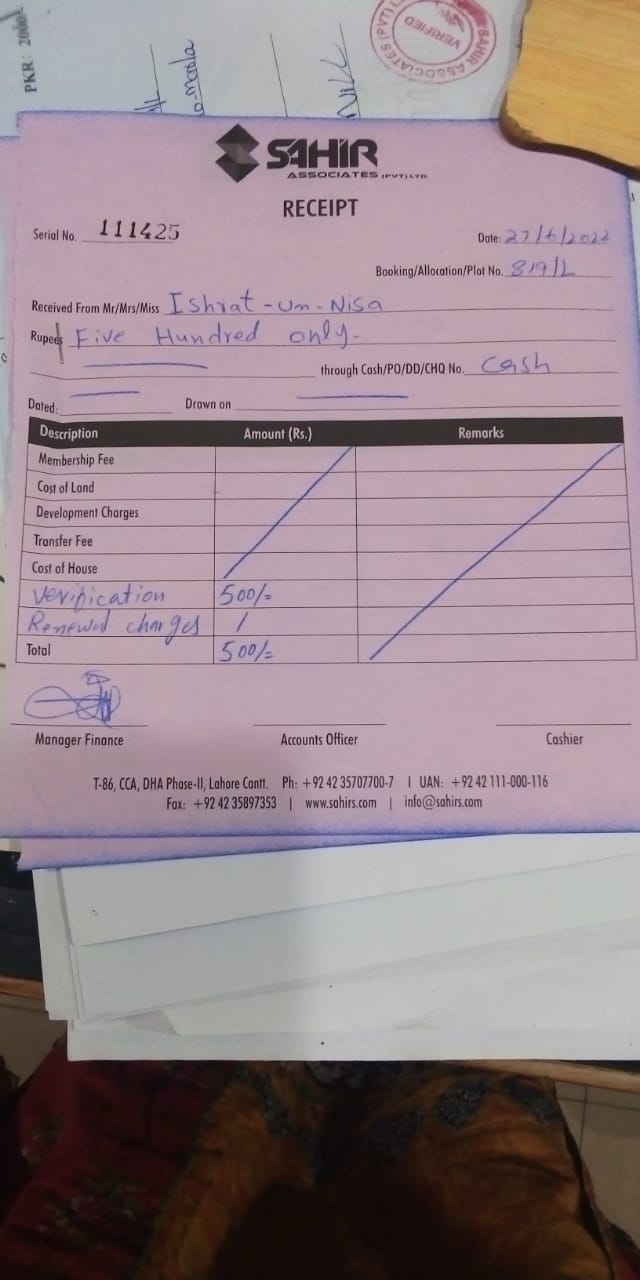 PKR: 2000
NILL
SAHIR ASSOCIATES (PVT) L
VERIFIED
SAHIR
ASSOCIATES (PVT) LTD.
RECEIPT
Serial No. 111425
Date: 27/6/2022
Booking/Allocation/Plot No. 819/L
Received From Mr/Mrs/Miss Ishrat-un-Nisa
Rupees Five Hundred only-
through Cash/PO/DD/CHQ No. Cash
Dated: Drawn on
Description Amount (Rs.) Remarks
Membership Fee
Cost of Land
Development Charges
Transfer Fee
Cost of House
Verification 500/=
Renewal charges /
Total 500/=
Manager Finance Accounts Officer Cashier
T-86, CCA, DHA Phase-II, Lahore Cantt. Ph: +92 42 35707700-7 | UAN: +92 42 111-000-116
Fax: +92 42 35897353 | www.sahirs.com | info@sahirs.com